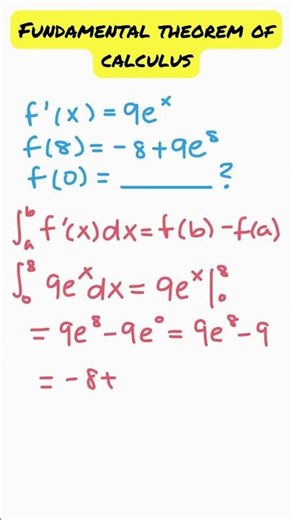 FUNDAMENTAL THEOREM OF
CALCULUS
f'(x) = 9eˣ
f(8) = -8+9e⁸
f(0) = ______ ?
∫ₐᵇ f'(x)dx = f(b) - f(a)
∫₀⁸ 9eˣdx = 9eˣ|₀⁸
= 9e⁸ - 9e⁰ = 9e⁸ - 9
= -8+